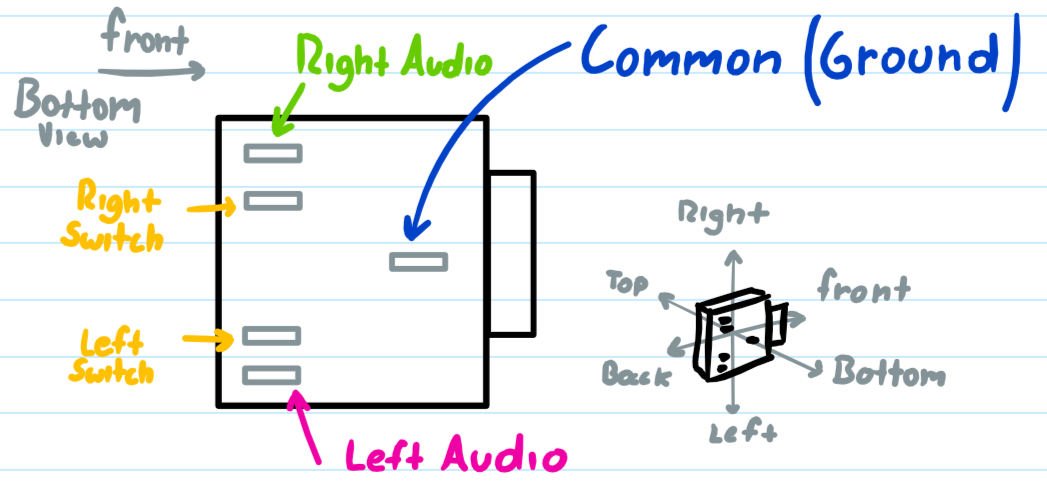 front
Bottom
View
Right Audio
Common (Ground)
Right
Switch
Left
Switch
Left Audio
Right
Top
front
Back
Bottom
Left